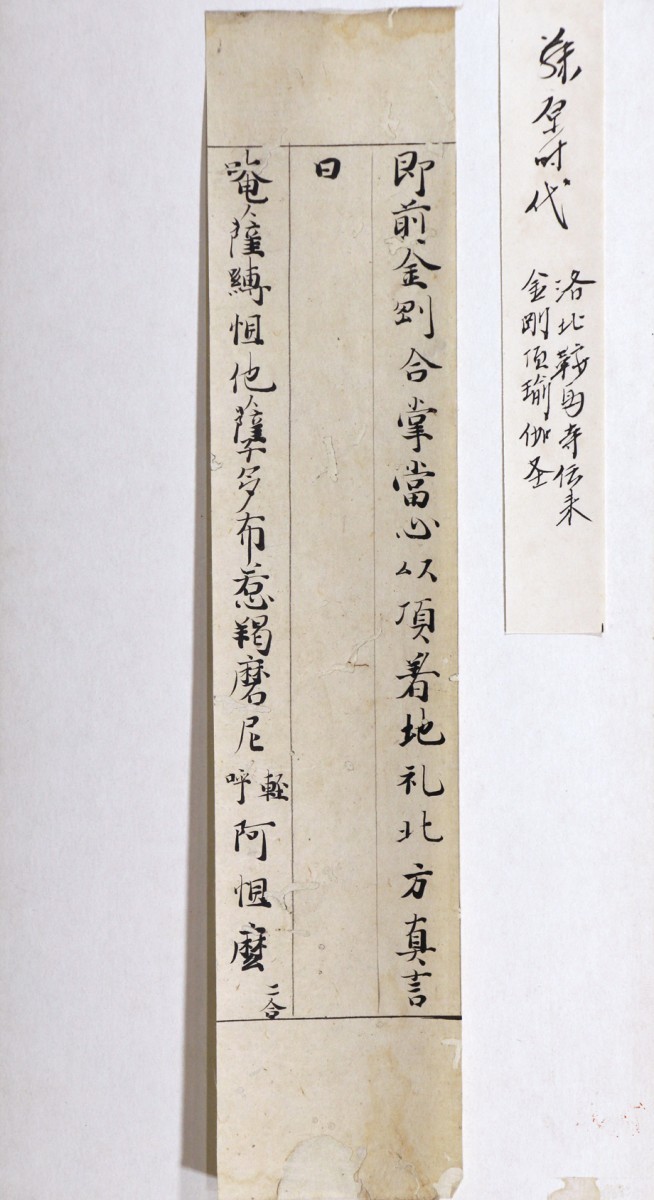 藤原时代
洛北鞍马寺伝来
金剛頂瑜伽圣
即前金剛合掌當心以頂着地礼北方真言
曰
唵薩縛怛他薩孽多布惹羯磨尼輕呼阿怛麼二合